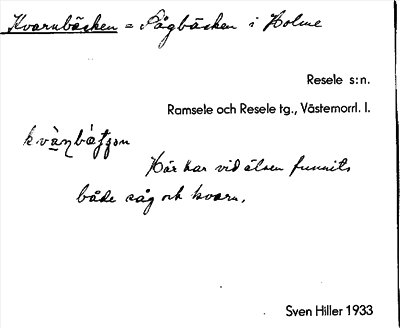 Kvarnbäcken = Sågbäcken i Holme
Resele s:n.
Ramsele och Resele tg., Västernorrl. l.
Här har vid älven funnits
både såg och kvarn.
Sven Hiller 1933